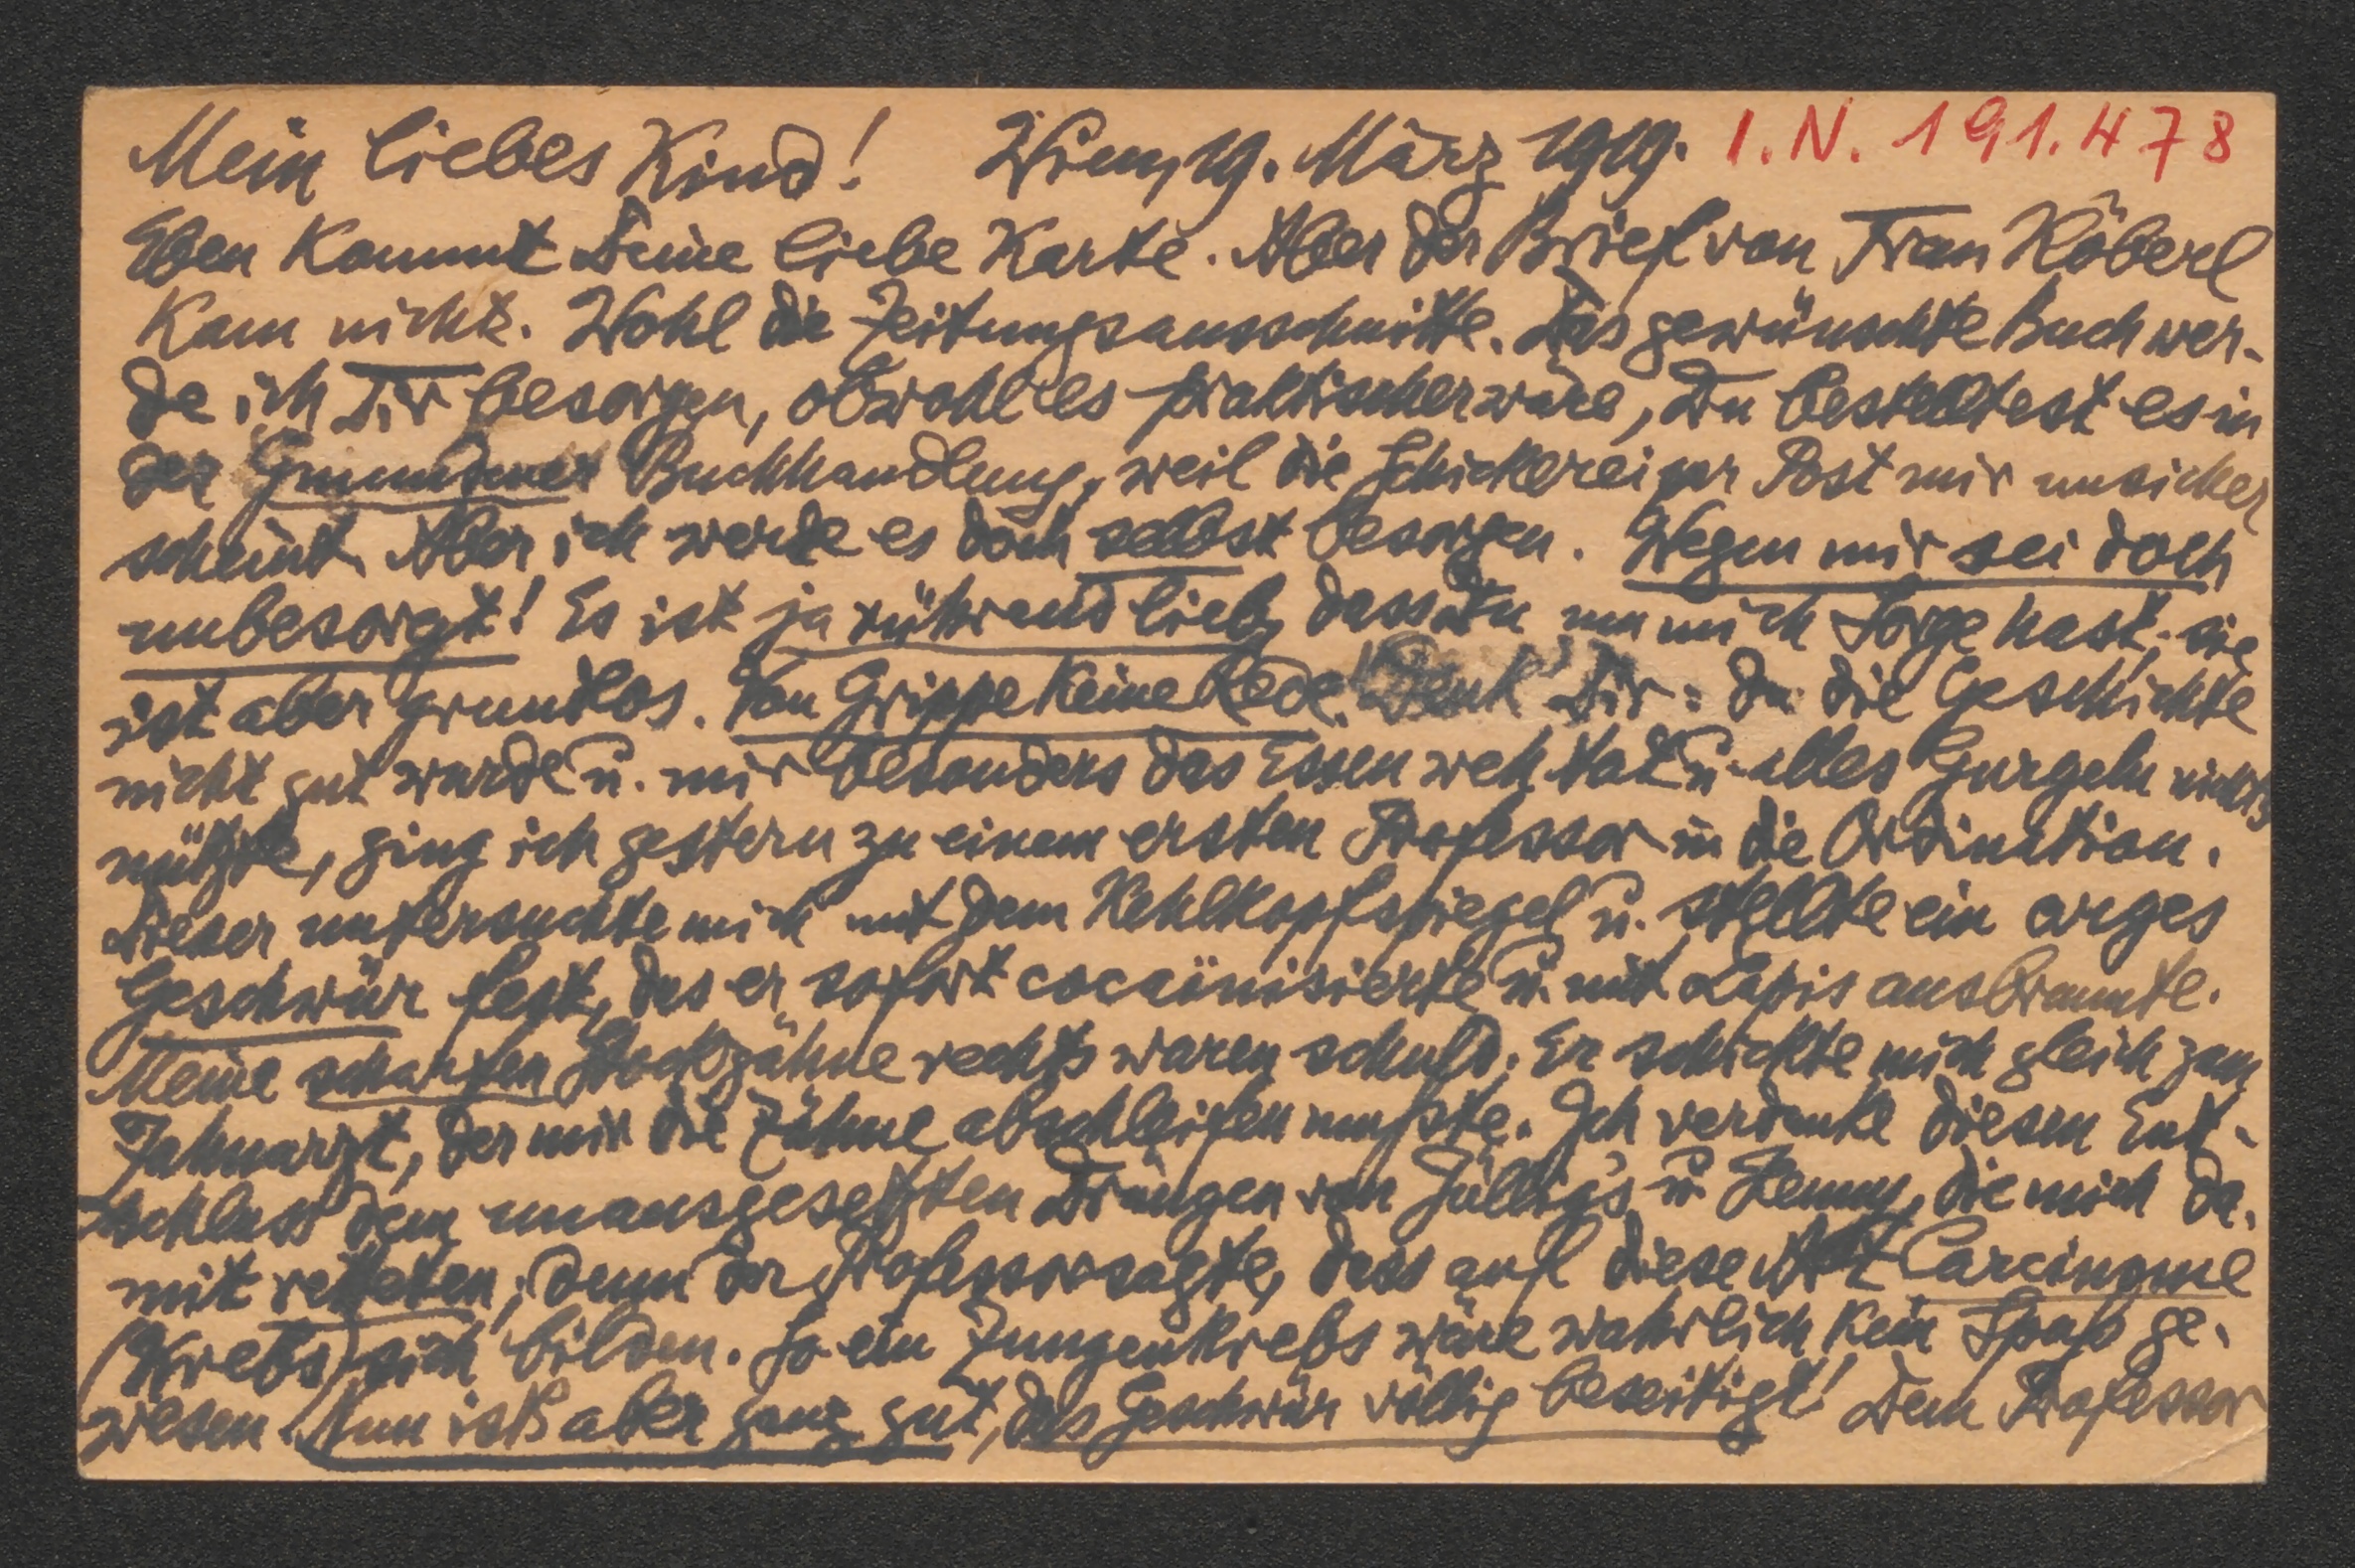 Mein liebes Kind! Wien, 19. März 1919. I.N. 191.478
Eben kommt Deine liebe Karte. Aber der Brief von Frau Köberl
kam nicht. Wohl die Zeitungsausschnitte. Das gewünschte Buch wer-
de ich Dir besorgen, obwohl es praktischer wäre, Du bestelltest es in
der Gmundner Buchhandlung, weil die Schickerei per Post mir unsicher
scheint. Aber ich werde es doch selbst besorgen. Wegen mir sei doch
unbesorgt! Es ist ja rührend lieb, dass Du um mich Sorge hast; sie
ist aber grundlos. Von Grippe keine Rede! Denk' Dir: Da die Geschichte
nicht gut wurde u. mir besonders das Essen weh tat u. alles Gurgeln nichts
nützte, ging ich gestern zu einem ersten Professor in die Ordination.
Dieser untersuchte mich mit dem Kehlkopfspiegel u. stellte ein arges
Geschwür fest, das er sofort cocaïnisierte u. mit Lapis ausbrannte.
Meine scharfen Stockzähne rechts waren schuld. Er schickte mich gleich zum
Zahnarzt, der mir die Zähne abschleifen mußte. Ich verdanke diesen Ent-
schluss dem unausgesetzten Drängen von Jüllig's u. Jenny, die mich da-
mit retteten; denn der Professor sagte, dass auf diese Art Carcinome
(Krebs) sich bilden. So ein Zungenkrebs wäre wahrlich kein Spaß ge-
wesen. Nun ist's aber ganz gut, das Geschwür völlig beseitigt! Dem Professor